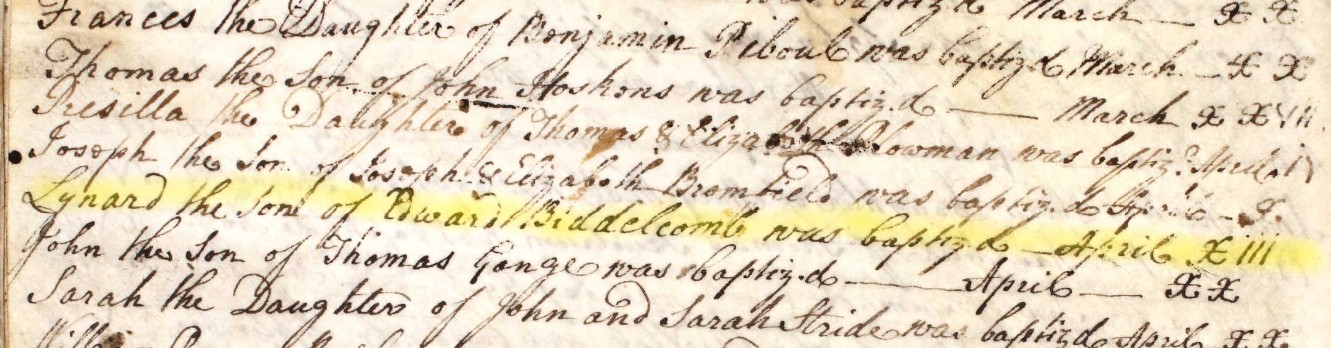 was baptiz'd March — X X
Frances the Daughter of Benjamin Riboul was baptiz'd March — X X
Thomas the Son of John Hoskons was baptiz.d — March X X VIII
Presilla the Daughter of Thomas & Elizabeth Plowman was baptiz.d April
Joseph the Son of Joseph & Elizabeth Bromfield was baptiz.d April — X.
Lynard the Son of Edward Biddelcomb was baptiz.d — April X III
John the Son of Thomas Gange was baptiz.d — April — X X
Sarah the Daughter of John and Sarah Stride was baptiz.d April X X
William